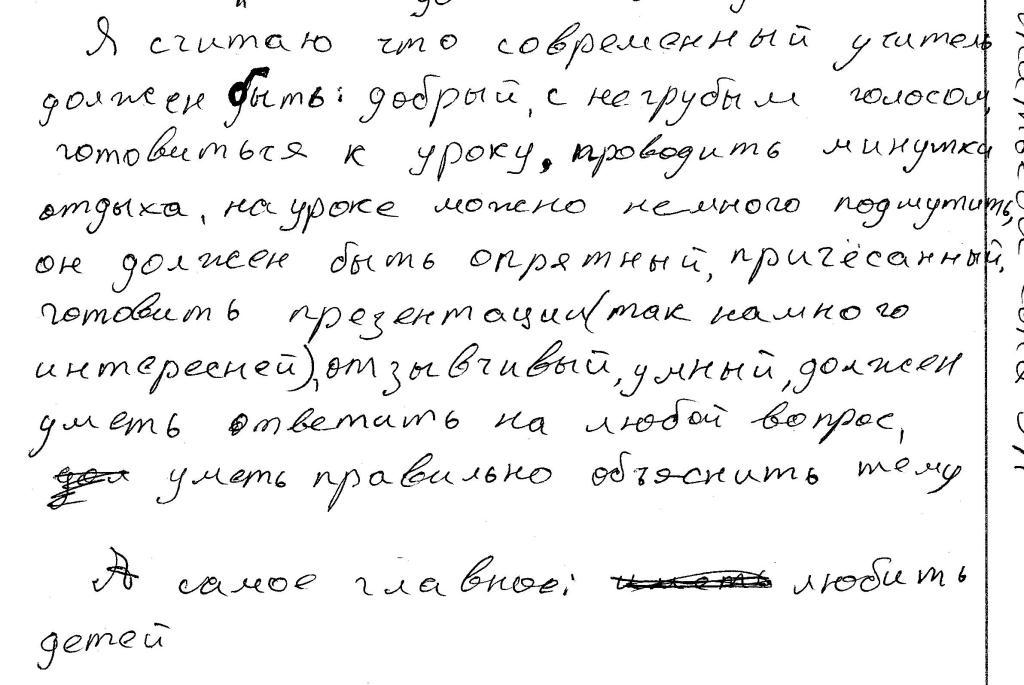 Я считаю что современный учитель
должен быть: добрый, с негрубым голосом,
готовиться к уроку, проводить минутки
отдыха, на уроке можно немного подшутить,
он должен быть опрятный, причёсанный,
готовить презентации (так намного
интересней), отзывчивый, умный, должен
уметь ответить на любой вопрос,
уметь правильно объяснить тему
А самое главное: любить
детей